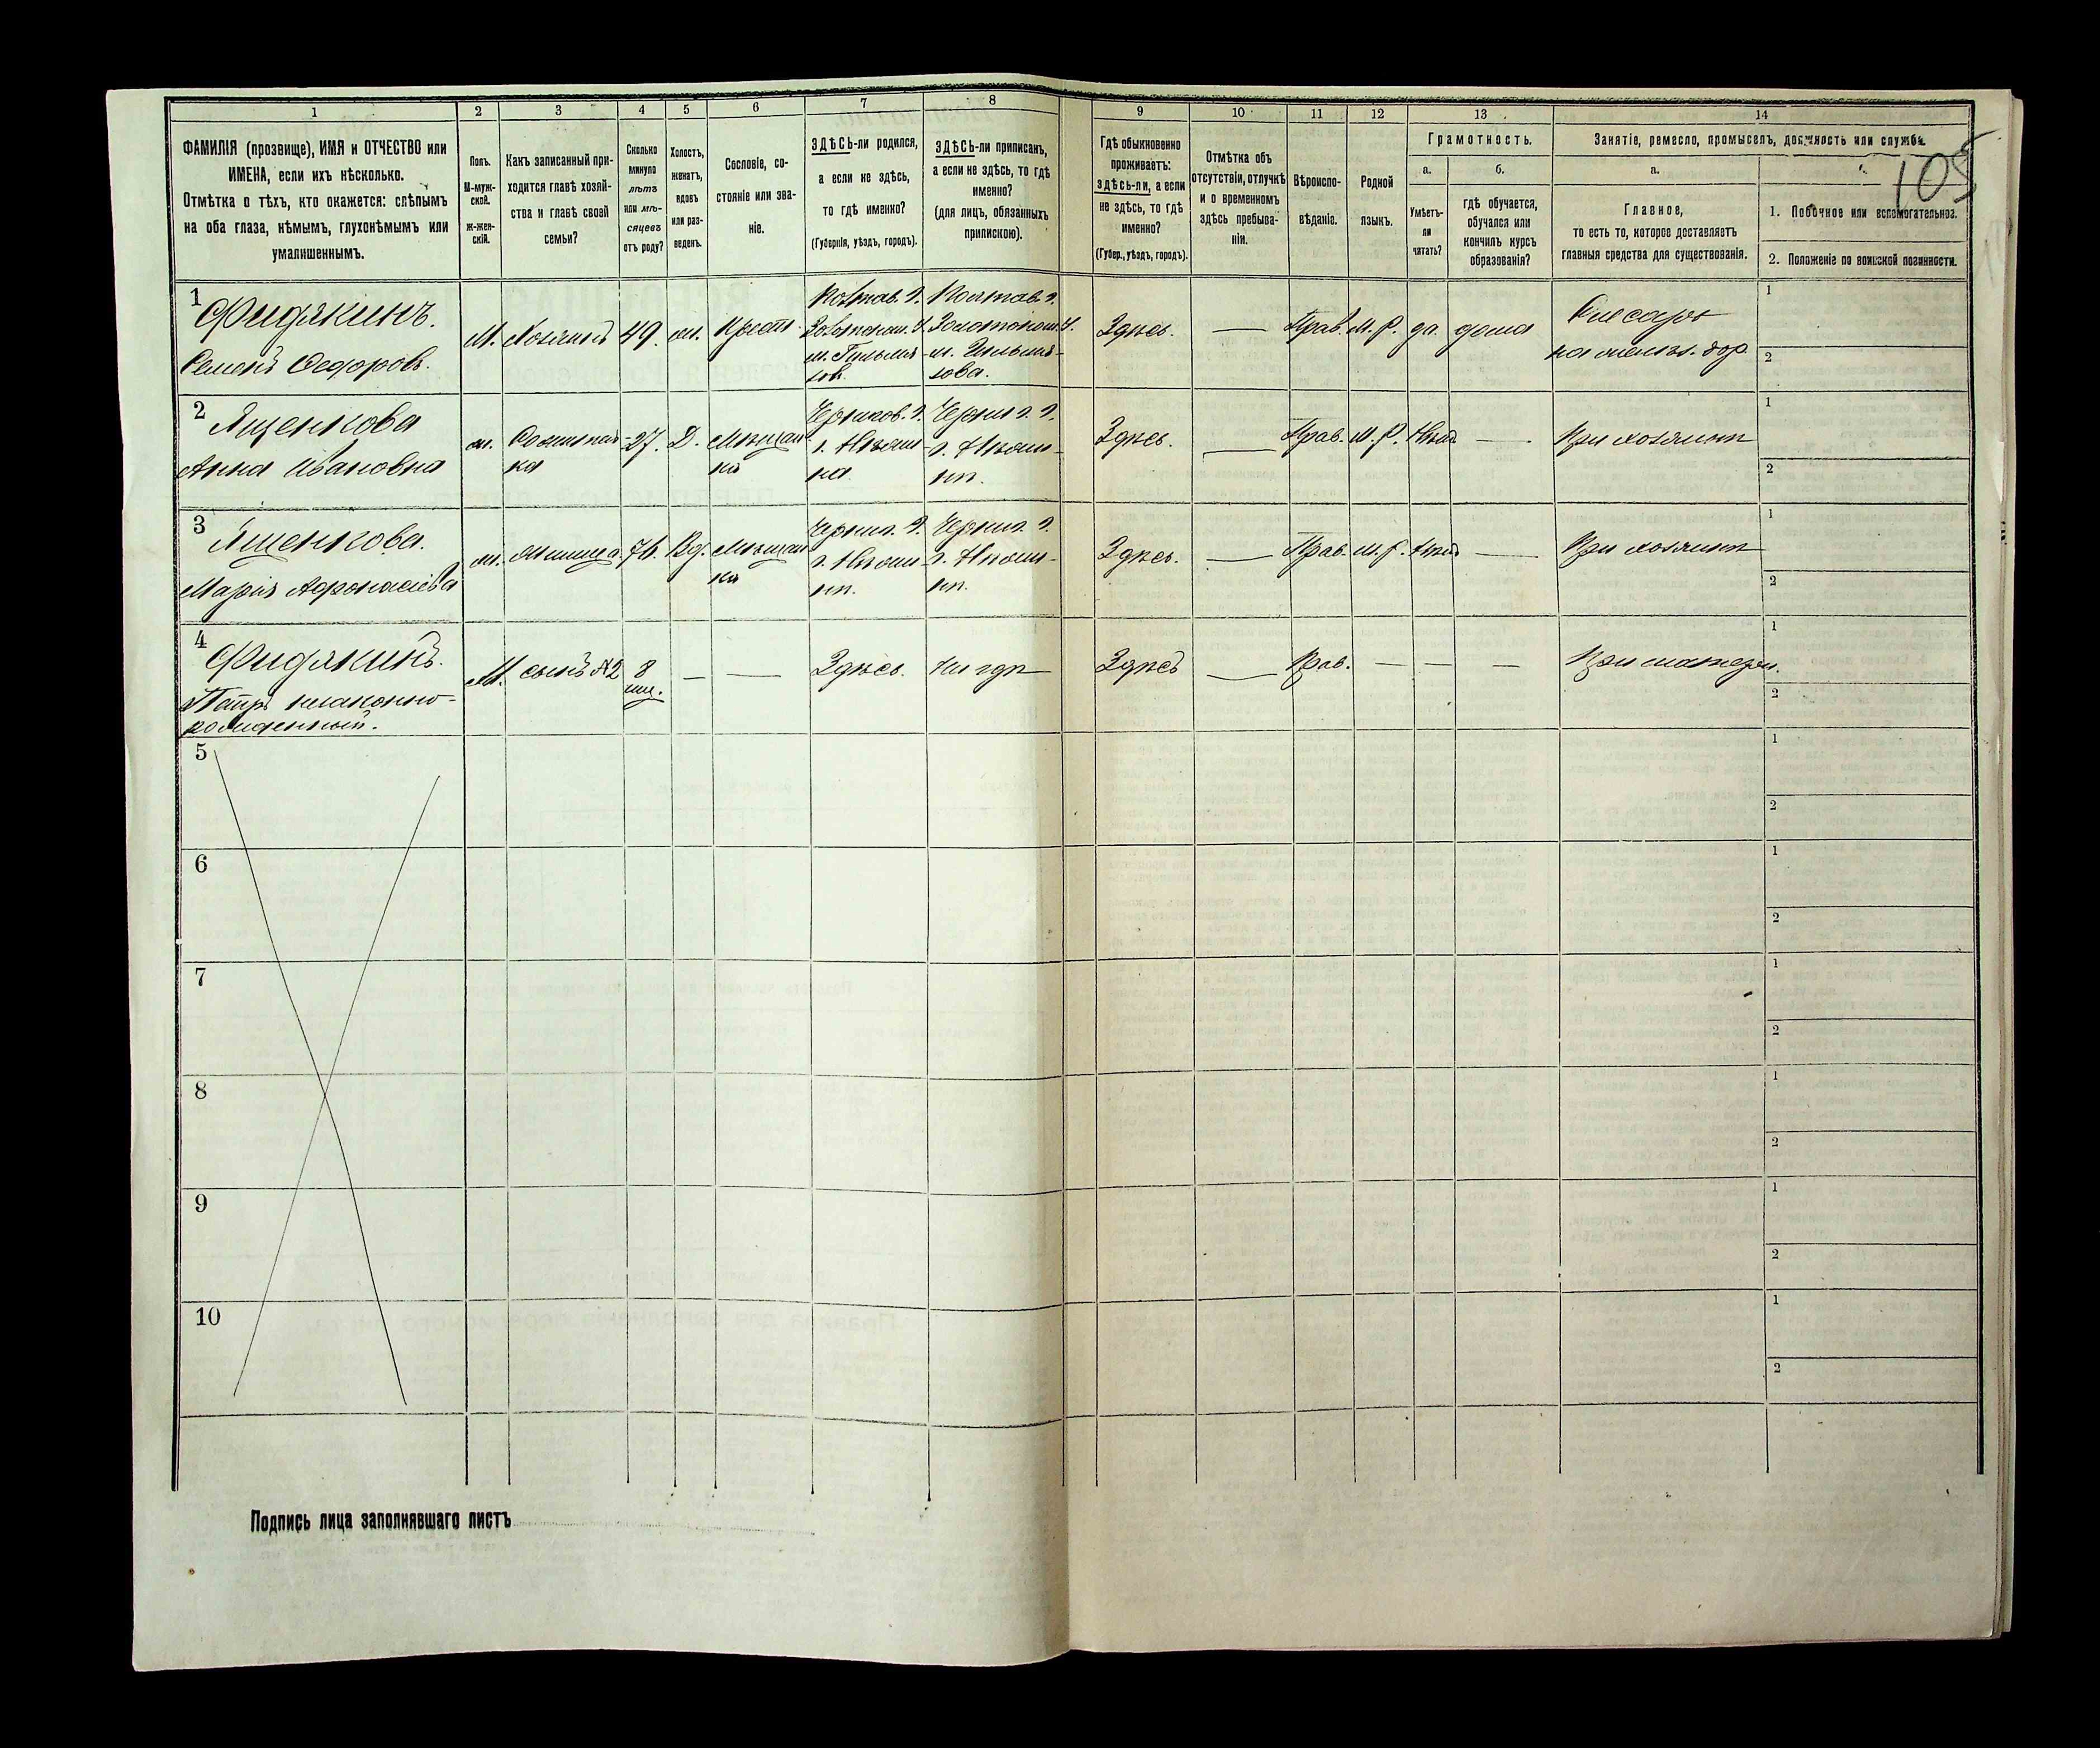 1 2 3 4 5 6 7 8 9 10 11 12 13 14
ФАМИЛІЯ (прозвище), ИМЯ и ОТЧЕСТВО или
ИМЕНА, если ихъ нѣсколько.
Отмѣтка о тѣхъ, кто окажется: слѣпымъ
на оба глаза, нѣмымъ, глухонѣмымъ или
умалишеннымъ.
Полъ.
М-муж-
ской.
ж-жен-
скій.
Какъ записанный при-
ходится главѣ хозяй-
ства и главѣ своей
семьи?
Сколько
минуло
лѣтъ
или мѣ-
сяцевъ
отъ роду?
Холостъ,
женатъ,
вдовъ
или раз-
веденъ.
Сословіе, со-
стояніе или зва-
ніе.
ЗДѢСЬ-ли родился,
а если не здѣсь,
то гдѣ именно?
(Губернія, уѣздъ, городъ).
ЗДѢСЬ-ли приписанъ,
а если не здѣсь, то гдѣ
именно?
(для лицъ, обязанныхъ
припискою).
Гдѣ обыкновенно
проживаетъ:
здѣсь-ли, а если
не здѣсь, то гдѣ
именно?
(Губер., уѣздъ, городъ).
Отмѣтка объ
отсутствіи, отлучкѣ
и о временномъ
здѣсь пребыва-
ніи.
Вѣроиспо-
вѣданіе.
Родной
языкъ.
Грамотность.
а.
Умѣетъ-
ли
читать?
б.
гдѣ обучается,
обучался или
кончилъ курсъ
образованія?
Занятіе, ремесло, промыселъ, должность или служба.
а.
Главное,
то есть то, которое доставляетъ
главныя средства для существованія.
105
1. Побочное или вспомогательное.
2. Положеніе по воинской повинности.
1
Фидякинъ.
Семенъ Федоровъ.
М. Хозяинъ 49. Крест.
Здѣсь. — Прав. М. Р. да. дома
Слесарь
1
2
2
Ященкова
Анна Ивановна
27. Д. Мѣщан
ка
Чернигов. г.
Здѣсь. — Прав. М. Р. Нѣтъ — При хозяинѣ
1
2
3
Ященкова.
Марія
Вд. Мѣщан
ка
Здѣсь. — Прав. М. Р. Нѣтъ — При хозяинѣ
1
2
4
Фидякинъ.
Петръ незаконно-
рожденный.
М. сынъ №2 8
мц.
— — Здѣсь. Нигдѣ Здѣсь — Прав. — — — При матери.
1
2
5
1
2
6
1
2
7
1
2
8
1
2
9
1
2
10
1
2
Подпись лица заполнявшаго листъ